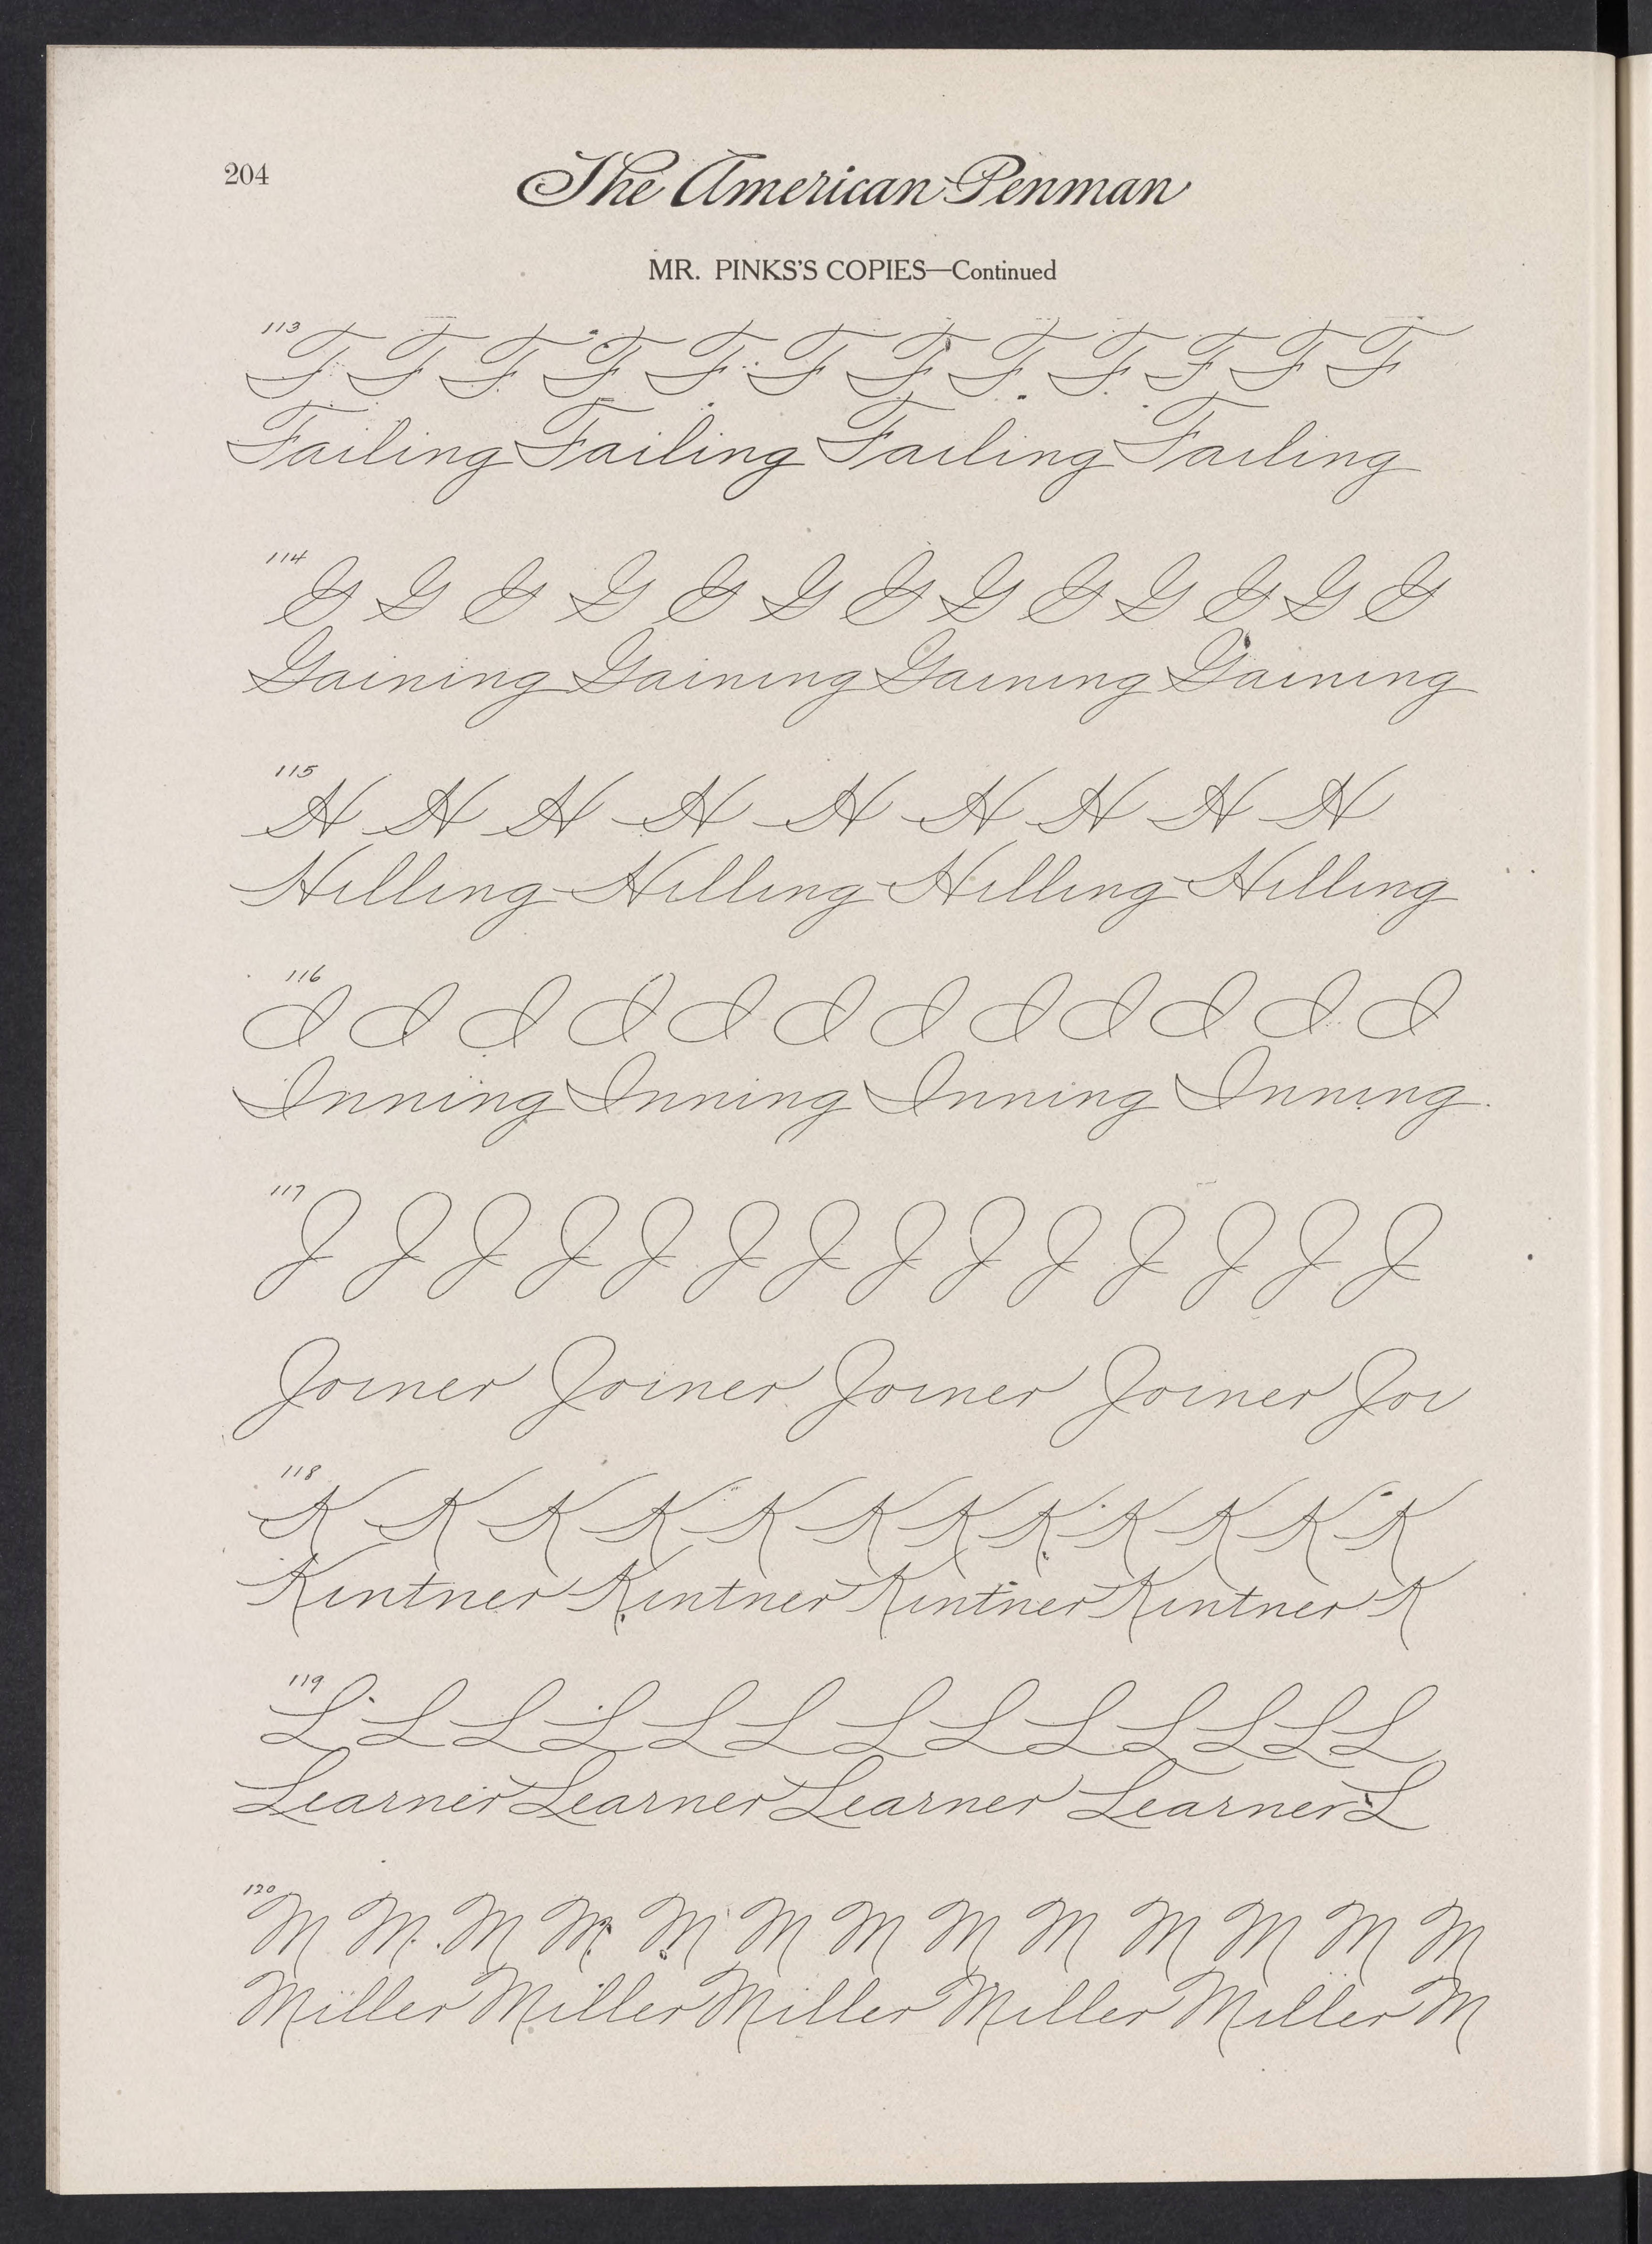 204
The American Penman
MR. PINKS'S COPIES—Continued
113
F F F F F F F F F F F F
Failing Failing Failing Failing
114
G G G G G G G G G G G G G
Gaining Gaining Gaining Gaining
115
H H H H H H H H H
Hilling Hilling Hilling Hilling
116
I I I I I I I I I I I I
Inning Inning Inning Inning
117
J J J J J J J J J J J J J J
Joiner Joiner Joiner Joiner Joi
118
K K K K K K K K K K K K
Kintner Kintner Kintner Kintner K
119
L L L L L L L L L L L L L
Learner Learner Learner Learner L
120
M M M M M M M M M M M M M
Miller Miller Miller Miller Miller M